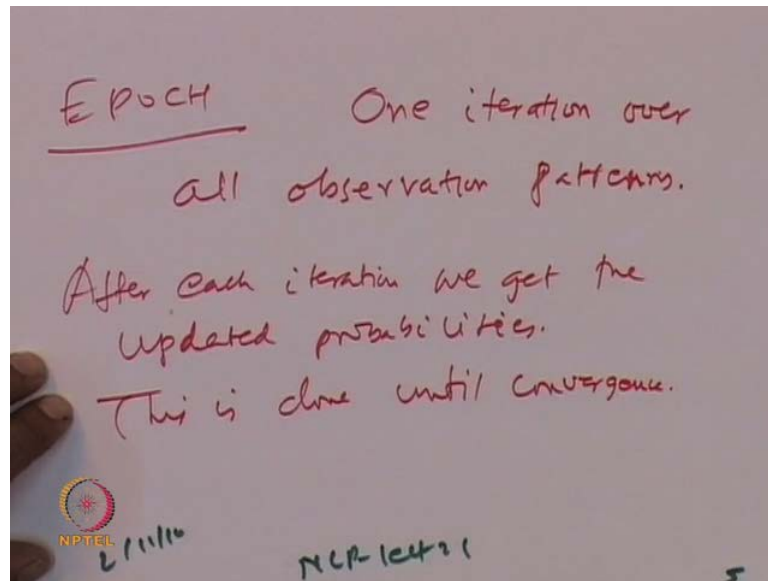 EPOCH One iteration over
all observation patterns.
After each iteration we get the
updated probabilities.
This is done until convergence.
NPTEL
2/11/10 NLP-lect 21 5